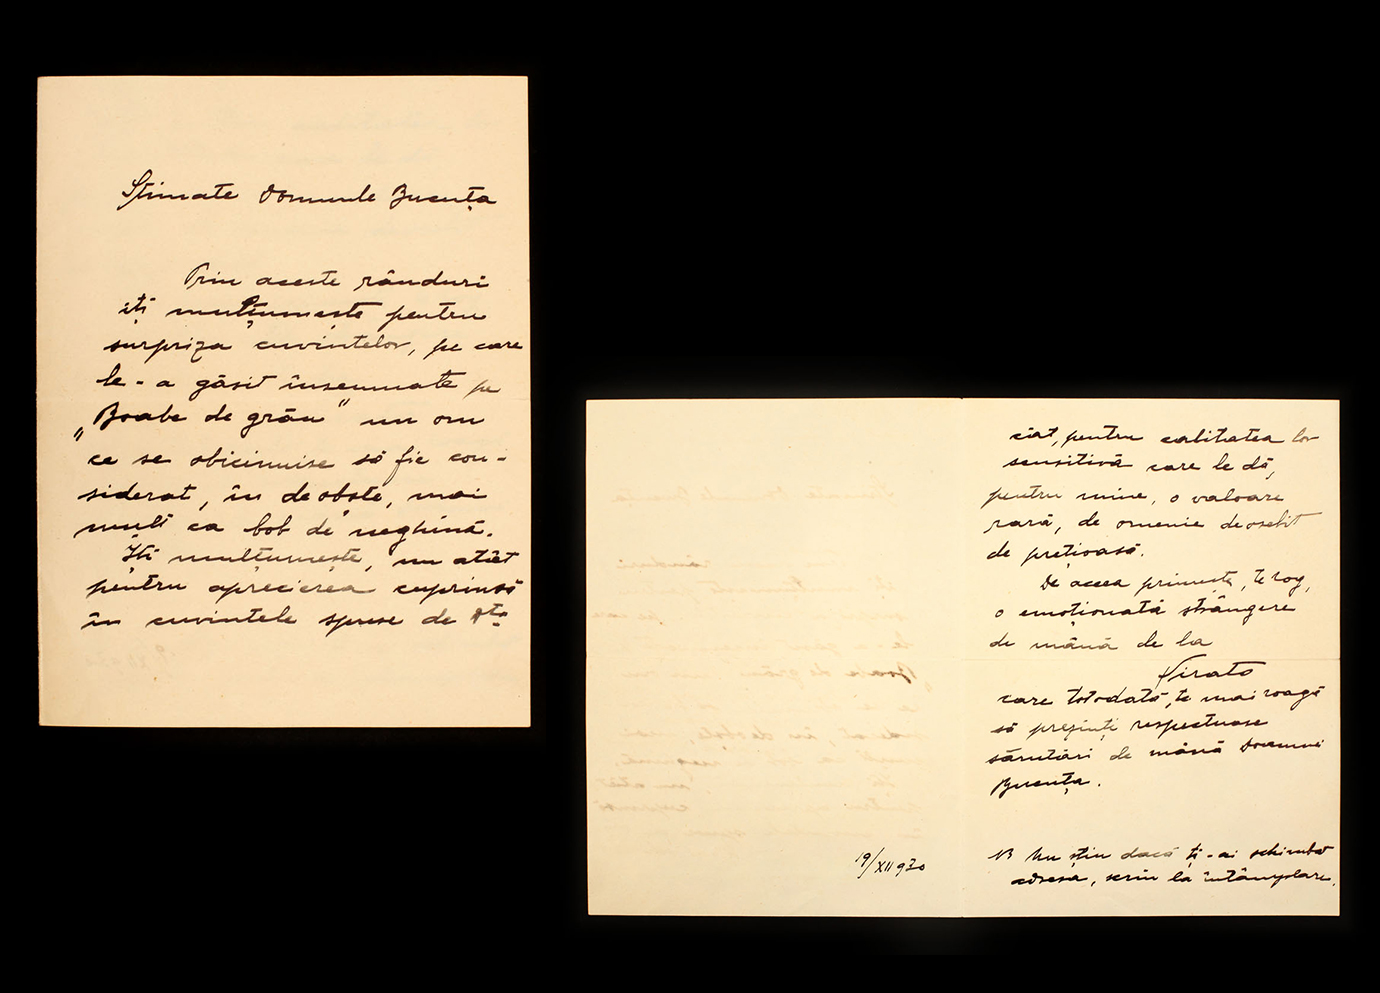 Stimate Domnule Bucuța
Prin aceste rânduri
îți mulțumește pentru
surpriza cuvintelor, pe care
le-a găsit însemnate pe
„Boabe de grâu" un om
ce se obicinuise să fie con-
siderat, în deobște, mai
mult ca bob de neghină.
Iți mulțumește, nu atât
pentru aprecierea cuprinsă
în cuvintele spuse de Dta
ciat, pentru calitatea lor
sensitivă care le dă,
pentru mine, o valoare
rară, de omenie deosebit
de prețioasă.
De aceea primește, te rog,
o emoționată strângere
de mână de la
care totodată, te mai roagă
să prezinți respectuase
sărutări de mână Doamnei
Bucuța.
19/XII 930
NB Nu știu dacă ți-ai schimbat
adresa, scriu la întâmplare.